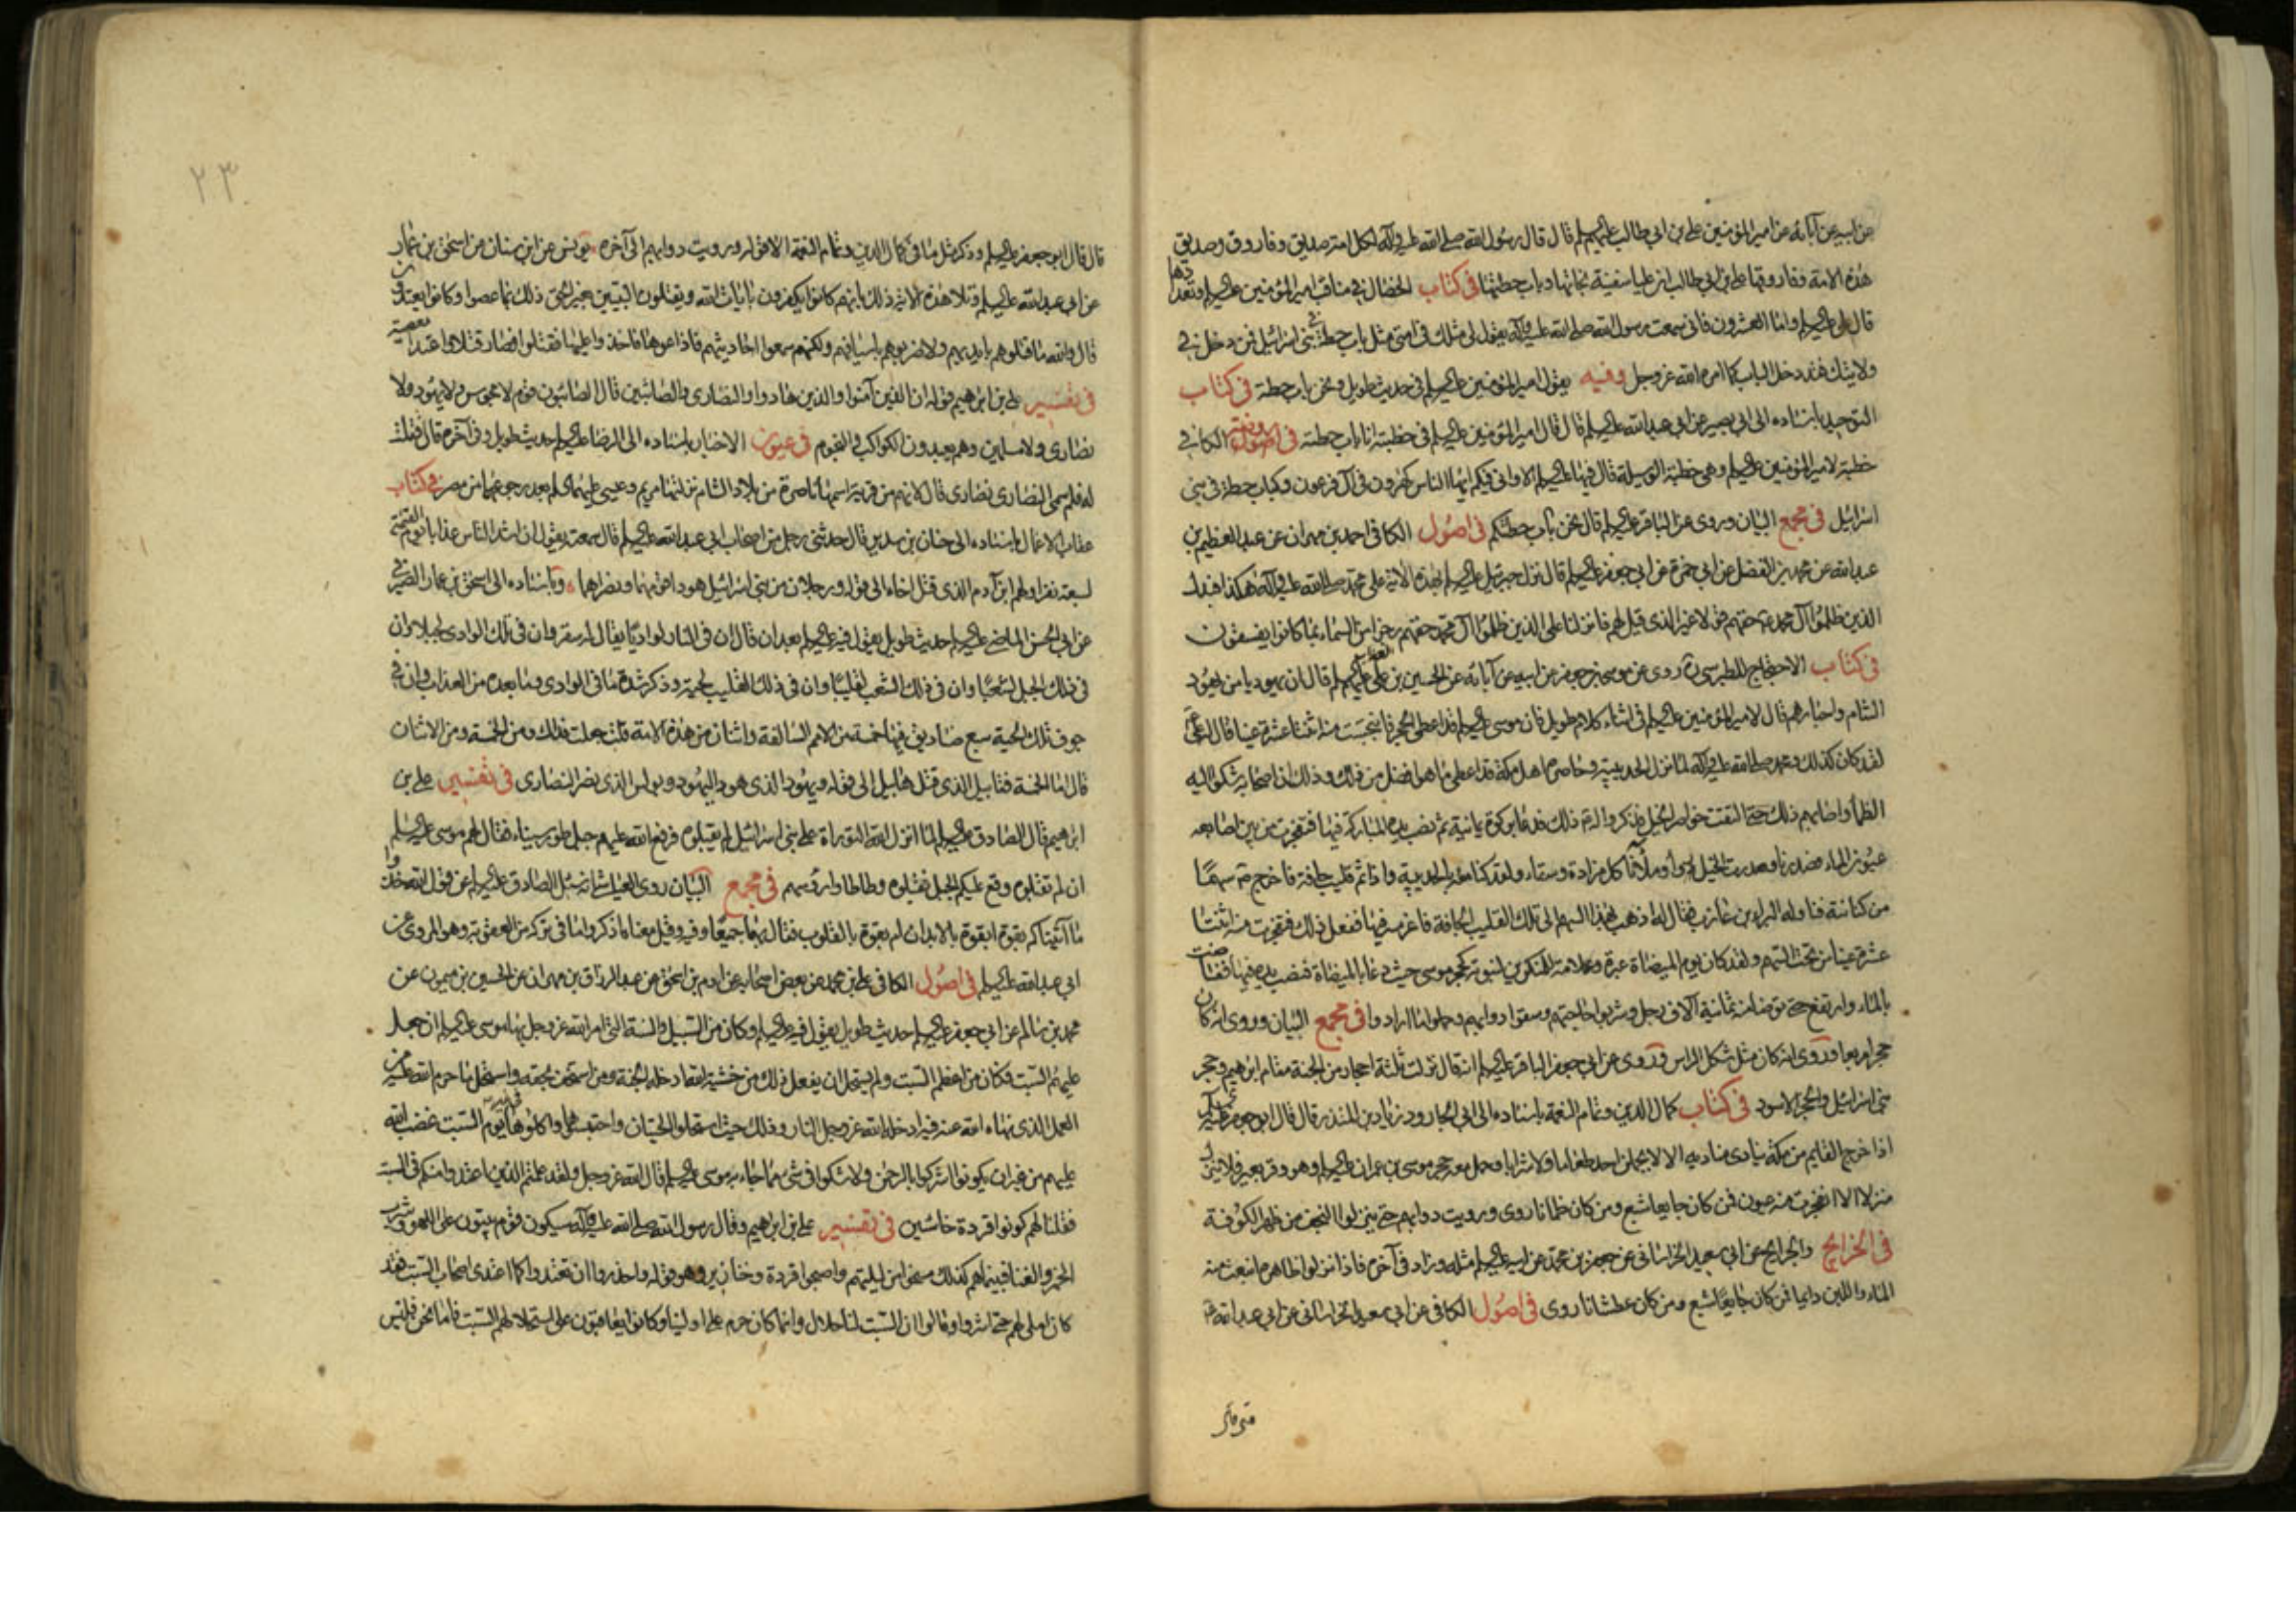 عن ابيه عن آبائه عن امير المؤمنين علي بن ابي طالب عليهم السلم قال قال رسول الله صلى الله عليه وآله لكل امة صديق وفاروق وصديق
هذه الامة وفاروقها علي بن ابي طالب ان عليا سفينة نجاتها وباب حطتها في كتاب الخصال في مناقب امير المؤمنين عليه السلم وتعدادها
قال علي عليه السلم واما العشرون فاني سمعت رسول الله صلى الله عليه وآله يقول لي مثلك في امتي مثل باب حطة في بني اسرائيل فمن دخل في
ولايتك فقد دخل الباب كما امره الله عز وجل وفيه يقول امير المؤمنين عليه السلم في حديث طويل ونحن باب حطة في كتاب
التوحيد باسناده الى ابي بصير عن ابي عبد الله عليه السلم قال قال امير المؤمنين عليه السلم في خطبته انا باب حطة في الكافي
خطبة لامير المؤمنين عليه السلم وهي خطبة الوسيلة قال فيها عليه السلم الا واني فيكم ايها الناس كهرون في آل فرعون وكباب حطة في بني
اسرائيل في مجمع البيان وروى عن الباقر عليه السلم قال نحن باب حطتكم في اصول الكافي احمد بن مهران عن عبد العظيم بن
عبد الله عن محمد بن الفضل عن ابي حمزة عن ابي جعفر عليه السلم قال نزل جبرئيل عليه السلم بهذه الاية على محمد صلى الله عليه وآله هكذا فبدل
الذين ظلموا آل محمد حقهم قولا غير الذي قيل لهم فانزلنا على الذين ظلموا آل محمد حقهم رجزا من السماء بما كانوا يفسقون
في كتاب الاحتجاج للطبرسي ره روى عن موسى بن جعفر عن ابيه عن آبائه عن الحسين بن علي عليهم السلم قال ان يهوديا من يهود
الشام واحبارهم قال لامير المؤمنين عليه السلم في اثناء كلام طويل فان موسى عليه السلم قد اعطى الحجر فانبجست منه اثنتا عشرة عينا قال له علي
لقد كان كذلك ومحمد صلى الله عليه وآله لما نزل الحديبية وحاصره اهل مكة قد اعطى ما هو افضل من ذلك وذلك ان اصحابه شكوا اليه
الظمأ واصابهم ذلك حتى التقت خواصر الخيل فذكروا له ذلك فدعا بركوة يمانية ثم نصب يده المباركة فيها فتفجرت من بين اصابعه
عيون الماء فصدرنا وصدرت الخيل رواء وملأنا كل مزادة وسقاء ولقد كنا معه بالحديبية واذا ثم قليب جافة فاخرج سهما
من كنانته فناوله البراء بن عازب فقال له اذهب بهذا السهم الى تلك القليب الجافة فاغرسه فيها ففعل ذلك فتفجرت منه اثنتا
عشرة عينا من تحت السهم ولقد كان يوم الميضاة عبرة وعلامة للمنكرين لنبوته كحجر موسى حيث دعا بالميضاة فنصب يده فيها ففاضت
بالماء وارتفع حتى توضا منه ثمانية آلاف رجل وشربوا حاجتهم وسقوا دوابهم وحملوا ما ارادوا في مجمع البيان وروى انه كان
حجرا مربعا وروى انه كان مثل شكل الراس وروى عن ابي جعفر الباقر عليه السلم انه قال نزلت ثلثة احجار من الجنة مقام ابرهيم وحجر
بني اسرائيل والحجر الاسود في كتاب كمال الدين وتمام النعمة باسناده الى ابي الجارود زياد بن المنذر قال قال ابو جعفر عليه السلم
اذا خرج القايم من مكة ينادى مناديه الا لا يحملن احد طعاما ولا شرابا وحمل معه حجر موسى بن عمران عليه السلم وهو وقر بعير فلا ينزل
منزلا الا انفجرت منه عيون فمن كان جايعا شبع ومن كان ظمانا روى ورويت دوابهم حتى ينزلوا النجف من ظهر الكوفة
في الخرايج والجرايح عن ابي سعيد الخراساني عن جعفر بن محمد عن ابيه عليه السلم مثله وزاد في آخره فاذا نزلوا ظاهره انبعث منه
الماء واللبن دايما فمن كان جايعا شبع ومن كان عطشانا روى في اصول الكافي عن ابي سعيد الخراساني عن ابي عبد الله
٢٣
قال قال ابو جعفر عليه السلم وذكر مثل ما في كمال الدين وتمام النعمة الا قوله ورويت دوابهم الى آخره يونس عن ابن سنان عن اسحق بن عمار
عن ابي عبد الله عليه السلم وتلا هذه الاية ذلك بانهم كانوا يكفرون بايات الله ويقتلون النبيين بغير الحق ذلك بما عصوا وكانوا يعتدون
قال والله ما قتلوهم بايديهم ولا ضربوهم باسيافهم ولكنهم سمعوا احاديثهم فاذاعوها فاخذوا عليها فقتلوا فصار قتلا واعتداء ومعصية
في تفسير علي بن ابرهيم قوله ان الذين آمنوا والذين هادوا والنصارى والصابئين قال الصابئون قوم لا مجوس ولا يهود ولا
نصارى ولا مسلمين وهم يعبدون الكواكب والنجوم في عيون الاخبار باسناده الى الرضا عليه السلم حديث طويل وفي آخره قال فقلت
له فلم سمي النصارى نصارى قال لانهم من قرية اسمها ناصرة من بلاد الشام نزلتها مريم وعيسى عليهما السلم بعد رجوعهما من مصر في كتاب
عقاب الاعمال باسناده الى حنان بن سدير قال حدثني رجل من اصحاب ابي عبد الله عليه السلم قال سمعته يقول ان اشد الناس عذابا يوم القيمة
لسبعة نفر اولهم ابن آدم الذي قتل اخاه الى قوله ورجلان من بني اسرائيل هودا قومهما ونصراهما وباسناده الى اسحق بن عمار الصيرفي
عن ابي الحسن الماضي عليه السلم حديث طويل يقول فيه عليه السلم بعد ان قال ان في النار لواديا يقال له سقر وان في ذلك الوادي لجبلا وان
في ذلك الجبل لشعبا وان في ذلك الشعب لقليبا وان في ذلك القليب لحية وذكر شدة ما في الوادي وما بعده من العذاب وان في
جوف تلك الحية سبع صناديق فيها خمسة من الامم السالفة واثنان من هذه الامة قلت جعلت فداك ومن الخمسة ومن الاثنان
قال اما الخمسة فقابيل الذي قتل هابيل الى قوله ويهودا الذي هود اليهود وبولس الذي نصر النصارى في تفسير علي بن
ابرهيم قال الصادق عليه السلم لما انزل الله التوراة على بني اسرائيل لم يقبلوه فرفع الله عليهم جبل طور سيناء فقال لهم موسى عليه السلم
ان لم تقبلوه وقع عليكم الجبل فقبلوه وطاطاوا رؤسهم في مجمع البيان روى العياشي انه سئل الصادق عليه السلم عن قول الله خذوا
ما آتيناكم بقوة ابقوة بالابدان ام بقوة بالقلوب فقال بهما جميعا وفيه وقيل معناه اذكروا ما في تركه من العقوبة وهو المروى عن
ابي عبد الله عليه السلم في اصول الكافي علي بن محمد عن بعض اصحابه عن ادم بن اسحق عن عبد الرزاق بن مهران عن الحسين بن ميمون عن
محمد بن سالم عن ابي جعفر عليه السلم حديث طويل يقول فيه عليه السلم وكان من السبيل والسنة التي امر الله عز وجل بها موسى عليه السلم ان جعل
عليهم السبت فكان من اعظم السبت ولم يستحل ان يفعل ذلك من خشية الله ادخله الجنة ومن استخف بحقه واستحل ما حرم الله عليه من
العمل الذي نهاه الله عنه فيه ادخله الله عز وجل النار وذلك حيث استحلوا الحيتان واحتبسوها واكلوها يوم السبت غضب الله
عليهم من غير ان يكونوا اشركوا بالرحمن ولا شكوا في شئ مما جاء به موسى عليه السلم قال الله عز وجل ولقد علمتم الذين اعتدوا منكم في السبت
فقلنا لهم كونوا قردة خاسئين في تفسير علي بن ابرهيم وقال رسول الله صلى الله عليه وآله سيكون قوم يبيتون على اللهو وشرب
الخمر والغنا فبينما هم كذلك مسخوا من ليلتهم واصبحوا قردة وخنازير وهو قوله واحذروا ان تعتدوا كما اعتدى اصحاب السبت فقد
كان املى لهم حتى اثروا وقالوا ان السبت لنا حلال وانما كان حرم على اولينا وكانوا يعاقبون على استحلالهم السبت فاما نحن فليس